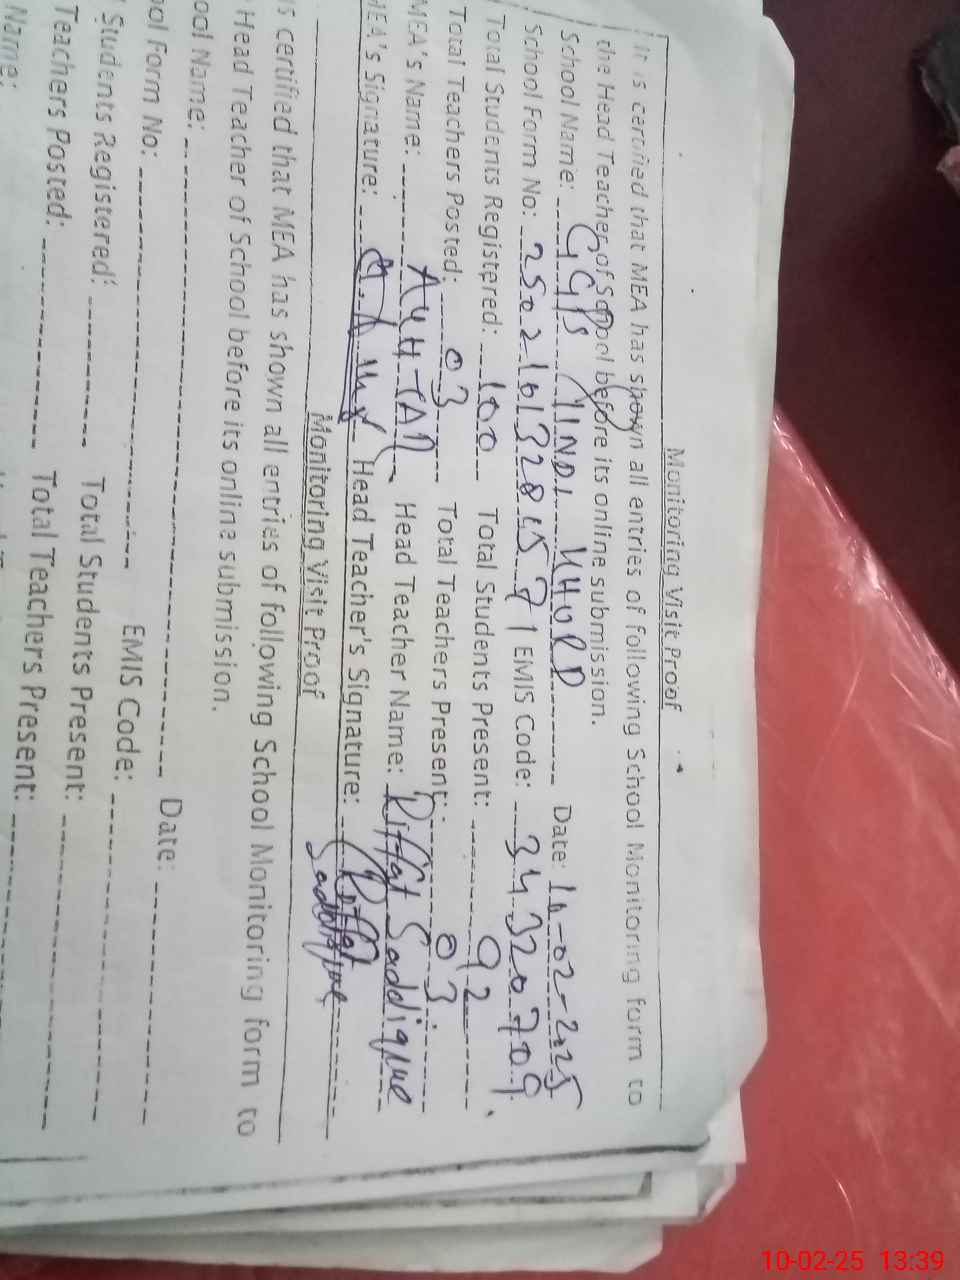 Monitoring Visit Proof
It is certified that MEA has shown all entries of following School Monitoring form to
the Head Teacher of School before its online submission.
School Name: GGPS JINDI KHURD Date: 10-02-2025
School Form No: EMIS Code: 34320709
Total Students Registered: 100 Total Students Present: 92
Total Teachers Posted: 03 Total Teachers Present: 03
MEA's Name: Head Teacher Name: Riffat Saddique
MEA's Signature: Head Teacher's Signature: Riffat
Saddique
Monitoring Visit Proof
is certified that MEA has shown all entries of following School Monitoring form to
Head Teacher of School before its online submission.
ool Name: Date:
ool Form No: EMIS Code:
Students Registered: Total Students Present:
Teachers Posted: Total Teachers Present:
Name:
10-02-25 13:39